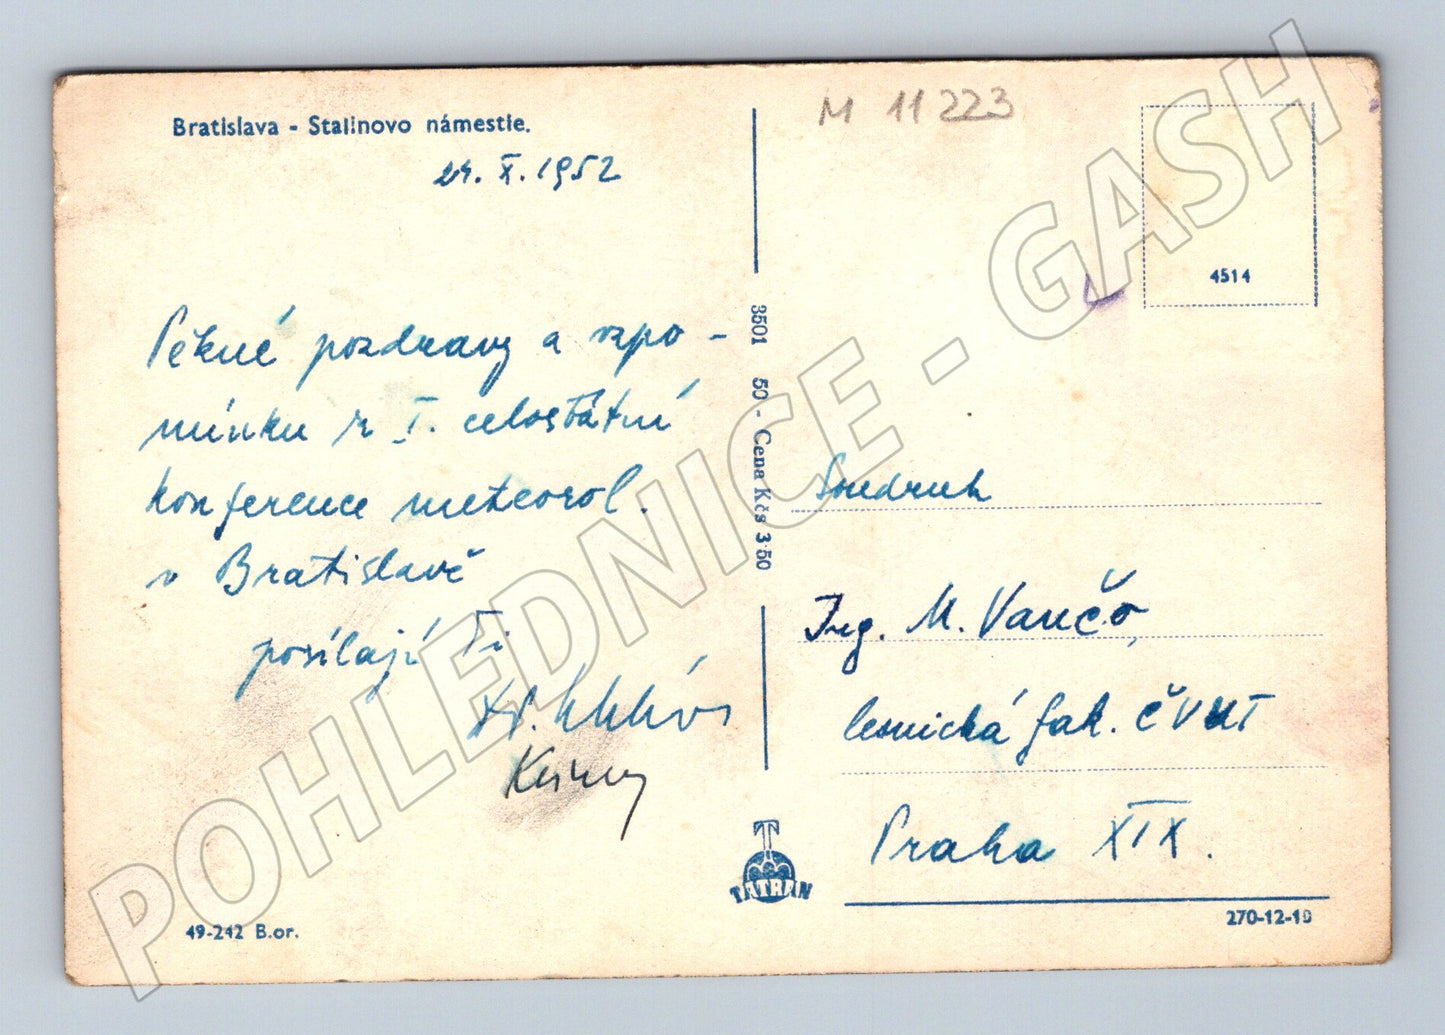 Bratislava - Stalinovo námestie.
24. X. 1952
Pěkné pozdravy a vzpo -
mínku z I. celostátní
konference meteorol.
v Bratislavě
posílají Ti
M 11223
4514
3501 50 - Cena Kčs 3·50
Soudruh
Ing. M. Vančo,
lesnická fak. ČVUT
Praha XIX.
TATRAN
49-242 B.or.
270-12-10
POHLEDNICE - GASH